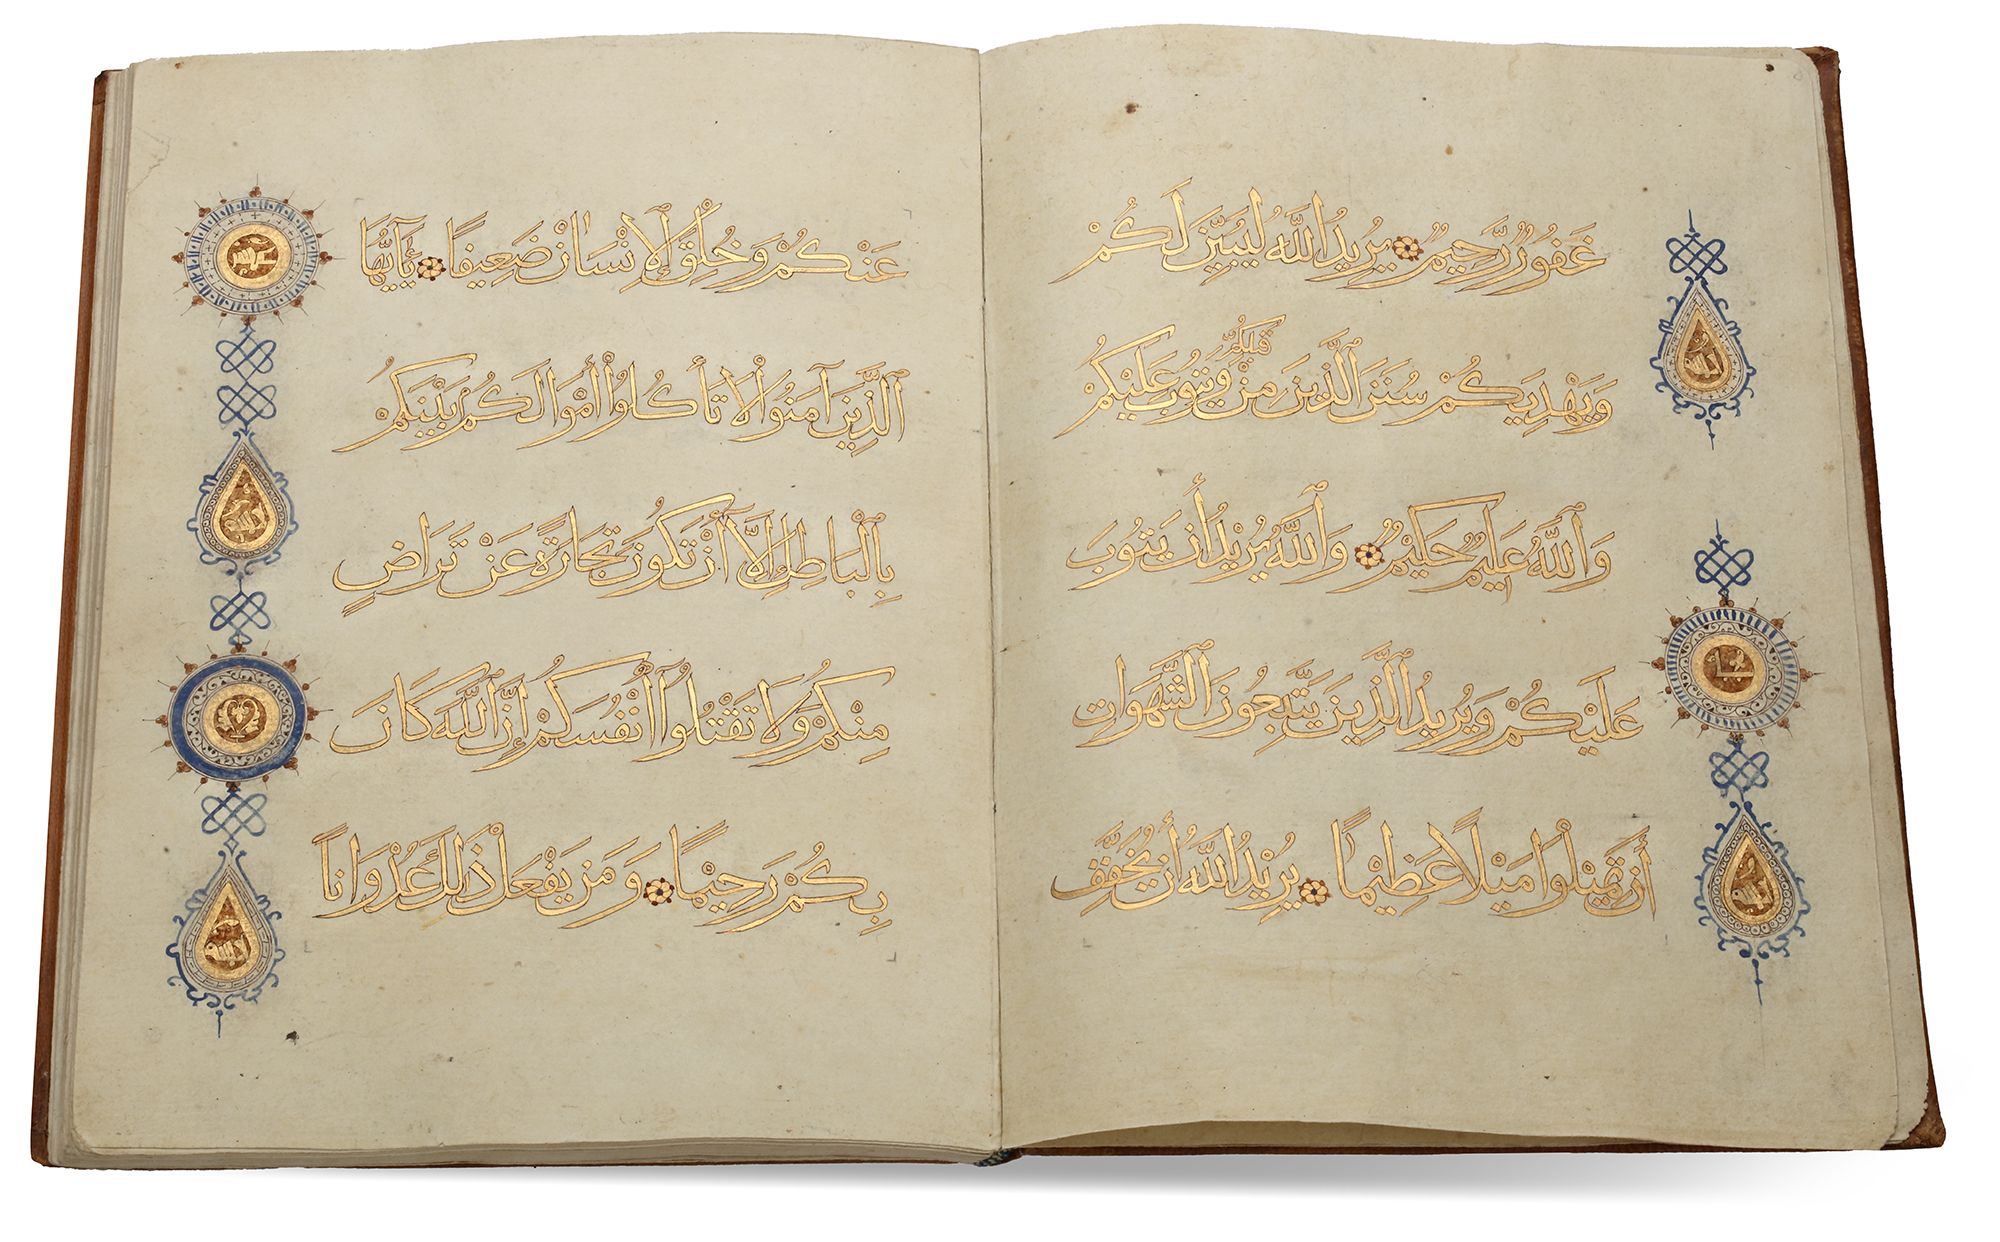 غَفُورٌ رَّحِيمٌ يُرِيدُ اللَّهُ لِيُبَيِّنَ لَكُمْ
وَيَهْدِيَكُمْ سُنَنَ الَّذِينَ مِنْ قَبْلِكُمْ وَيَتُوبَ عَلَيْكُمْ
وَاللَّهُ عَلِيمٌ حَكِيمٌ وَاللَّهُ يُرِيدُ أَنْ يَتُوبَ
عَلَيْكُمْ وَيُرِيدُ الَّذِينَ يَتَّبِعُونَ الشَّهَوَاتِ
أَنْ تَمِيلُوا مَيْلًا عَظِيمًا يُرِيدُ اللَّهُ أَنْ يُخَفِّفَ
عَنْكُمْ وَخُلِقَ الْإِنْسَانُ ضَعِيفًا يَا أَيُّهَا
الَّذِينَ آمَنُوا لَا تَأْكُلُوا أَمْوَالَكُمْ بَيْنَكُمْ
بِالْبَاطِلِ إِلَّا أَنْ تَكُونَ تِجَارَةً عَنْ تَرَاضٍ
مِنْكُمْ وَلَا تَقْتُلُوا أَنْفُسَكُمْ إِنَّ اللَّهَ كَانَ
بِكُمْ رَحِيمًا وَمَنْ يَفْعَلْ ذَلِكَ عُدْوَانًا